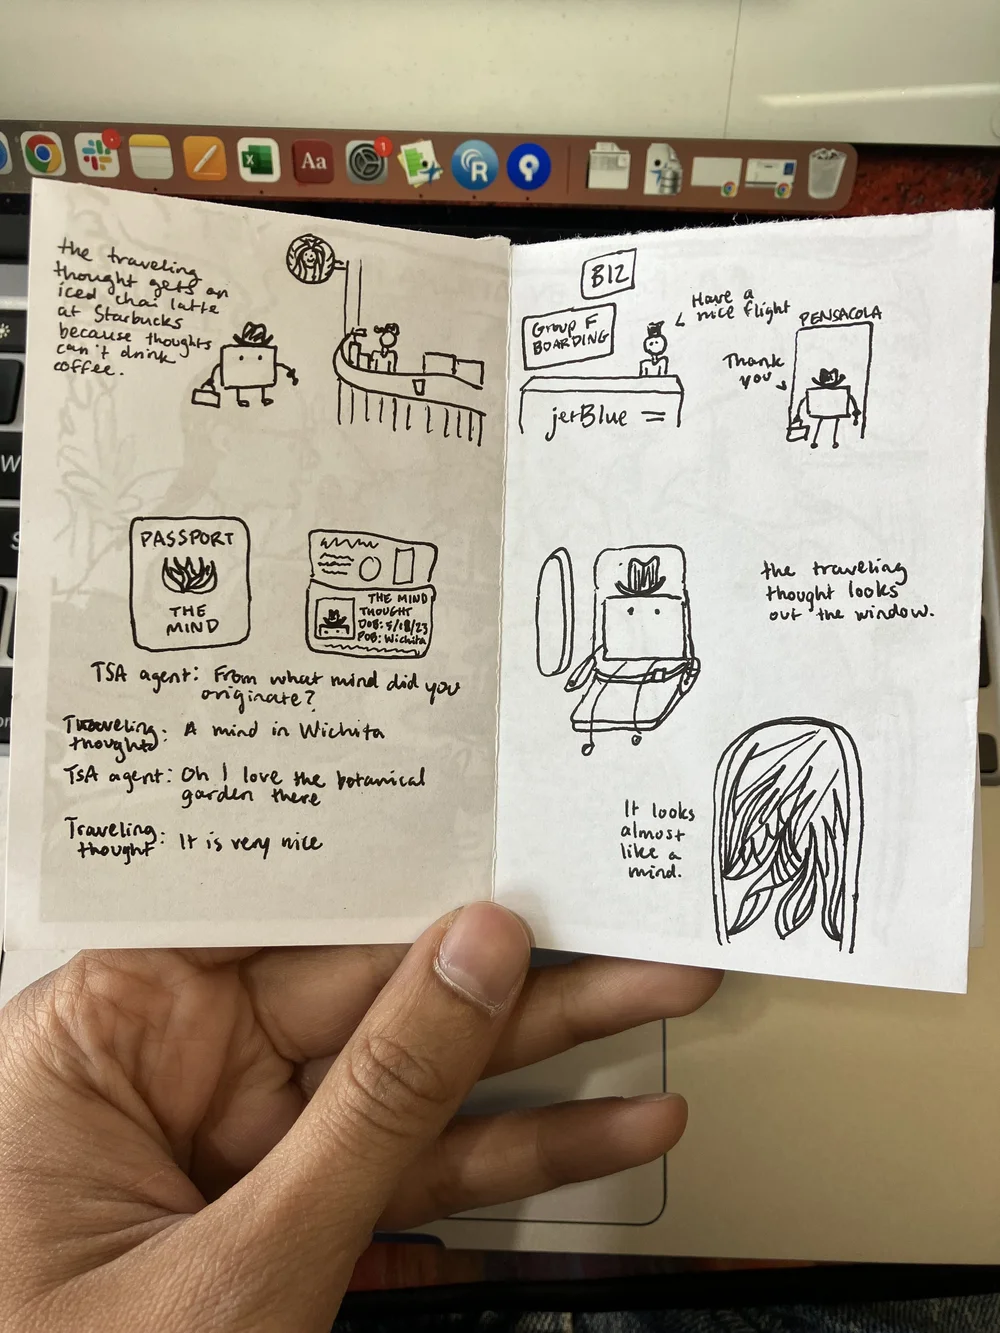 Aa
1
R
the traveling
thought gets an
iced chai latte
at Starbucks
because thoughts
can't drink
coffee.
PASSPORT
THE
MIND
THE MIND
THOUGHT
DOB: 5/18/23
POB: Wichita
TSA agent: From what mind did you
originate?
Traveling
thought: A mind in Wichita
TSA agent: Oh I love the botanical
garden there
Traveling
thought: It is very nice
B12
Group F
BOARDING
Have a
nice flight
jetBlue
PENSACOLA
Thank
you
the traveling
thought looks
out the window.
It looks
almost
like a
mind.